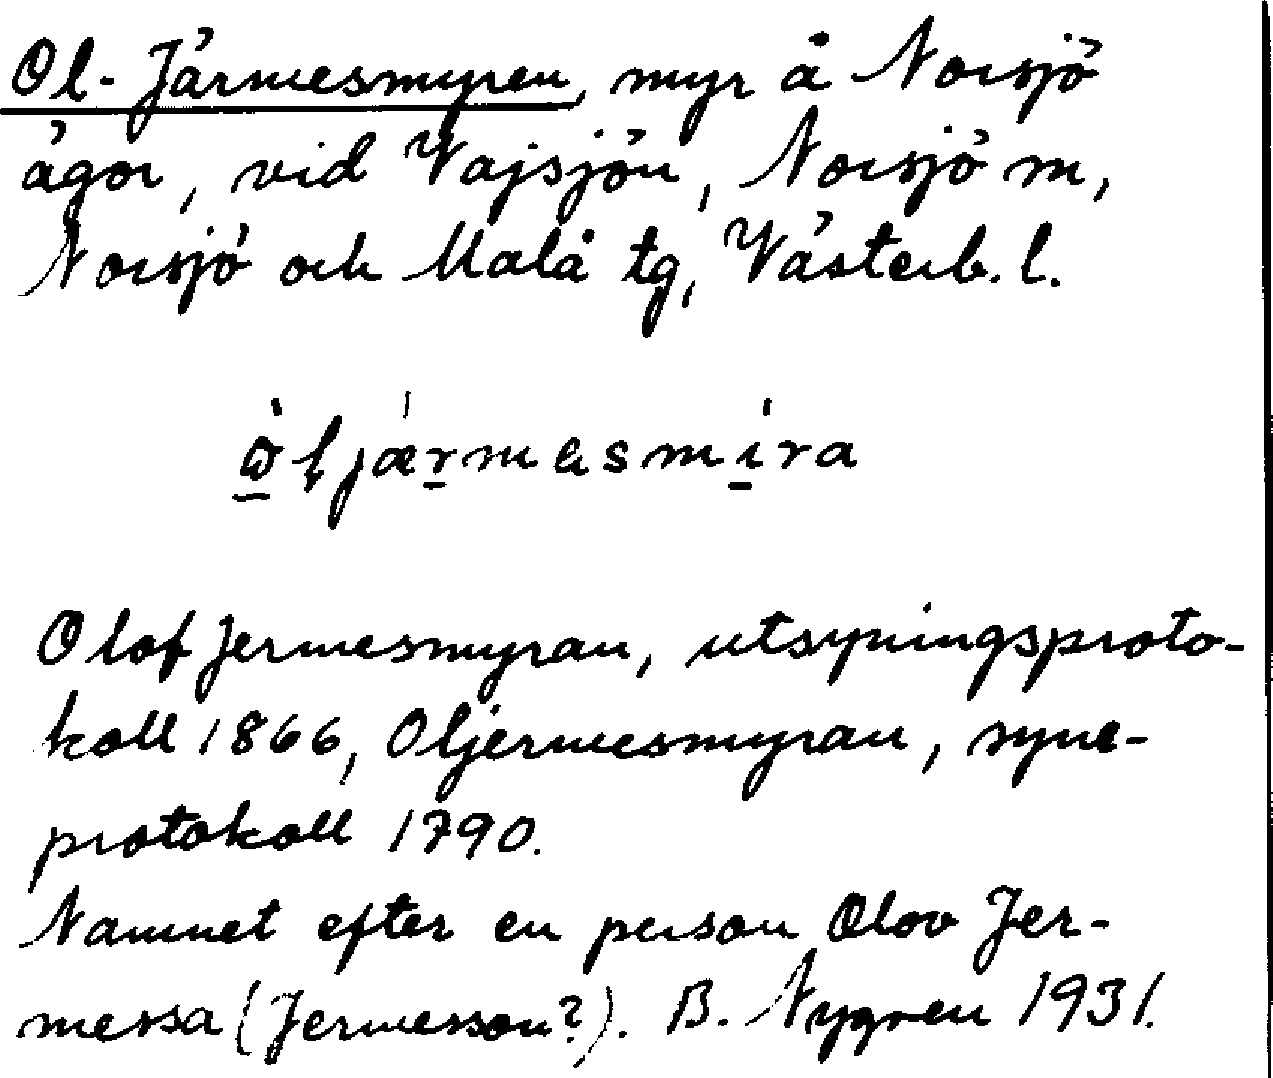 Ol-Järmesmyren, myr å Norsjö
ägor, vid Vajsjön, Norsjö sn,
Norsjö och Malå tg, Västerb. l.
Olof Jermesmyran, utsyningsproto-
koll 1866, Oljermesmyran, syne-
protokoll 1790.
Namnet efter en person Olov Jer-
messa (Jermesson?). B. Nygren 1931.